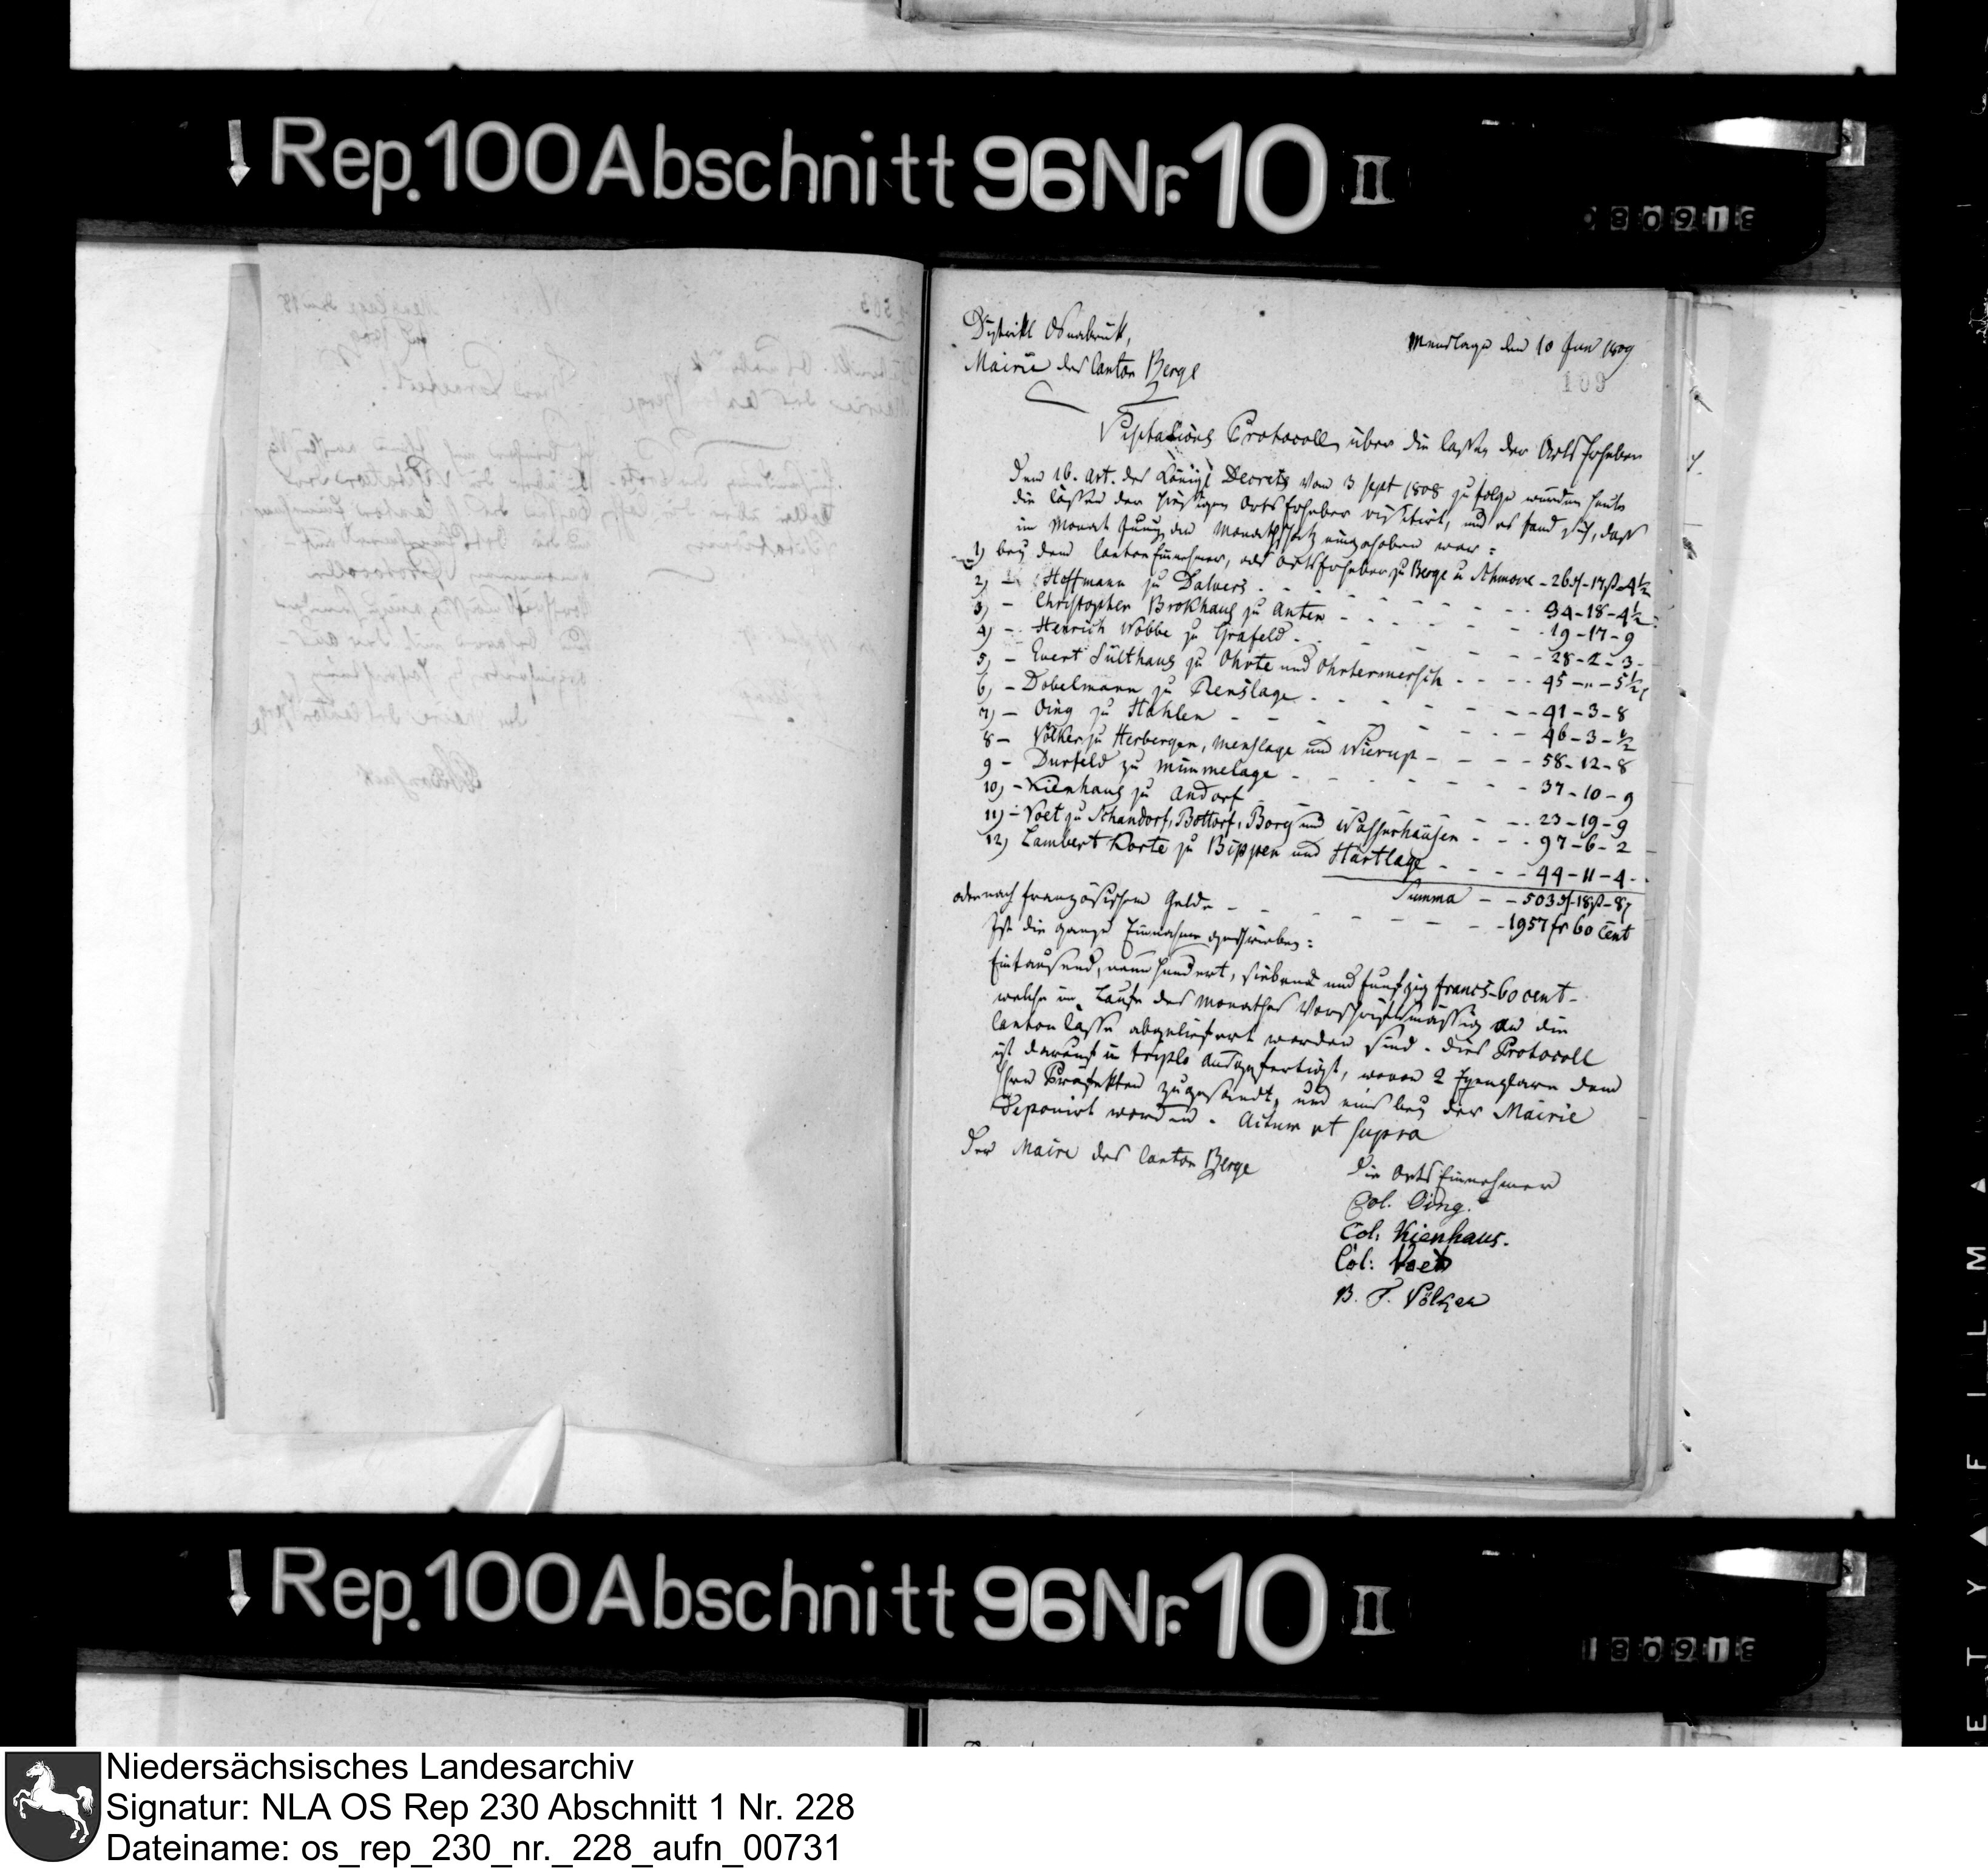 Rep. 100 Abschnitt 96 Nr. 10 II
Distrikt Osnabrück,
Mairie des Canton Berge
Menslage den 10 Jun 1809
109
Visitations Protocoll über die Cassen der OrtsErheber
Dem 16. Art. des Königl Decrets vom 3 Sept 1808 zu folge wurden heute
die Cassen der hiesigen OrtsErheber visitirt, und es fand sich, dass
im Monat Juny an Monathschatz eingehoben war:
1) bey dem CantonEinnehmer, als OrtsErheber zu Berge u Schmone - 26 - 17 - 4½
2) - Hoffmann zu Dalvers - - - 34 - 18 - 4½
3) - Christopher Brokhaus zu Anten - - - 19 - 17 - 9
4) - Henrich Wobbe zu Grafeld - - - 28 - 2 - 3
5) - Evert Sülthaus zu Ohrte und Ohrtermersch - - - 45 - „ - 5½
6) - Dobelmann zu Renslage - - - 41 - 3 - 8
7) - Oing zu Hahlen - - - 46 - 3 - ½
8 - Völker zu Herbergen, Menslage und Wierup - - - 58 - 12 - 8
9 - Durfeld zu Mimmelage - - - 37 - 10 - 9
10) - Kienhaus zu Andorf - - - 23 - 19 - 9
11) - Voet zu Schandorf, Bottorf, Borg und Wasserhausen - - - 97 - 6 - 2
12) Lambert Korte zu Bippen und Hartlage - - - 44 - 11 - 4
Summa - - 503 - 18 - 8
oder nach französischem Gelde - - - 1957 fr 60 Cent
Ist die ganze Einnahme geschrieben:
Eintausend, neun hundert, sieben und funfzig francs - 60 cent -
welche im Laufe des Monathes Vorschriftsmässig an die
Canton Casse abgeliefert worden sind. Dies Protocoll
ist darauf in triplo ausgefertigt, wovon 2 Exemplare dem
Hrn Präfekten zugesandt, und eins bey der Mairie
deponirt worden. Actum ut supra
Der Maire des Canton Berge
Die OrtsEinnehmer
Col. Oing.
Col. Kienhaus.
Col: Voet
B. F. Völker
Rep. 100 Abschnitt 96 Nr. 10 II
Niedersächsisches Landesarchiv
Signatur: NLA OS Rep 230 Abschnitt 1 Nr. 228
Dateiname: os_rep_230_nr._228_aufn_00731